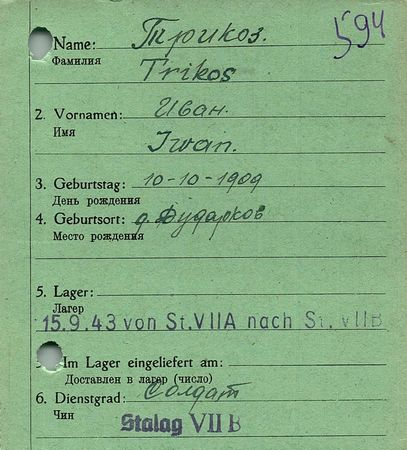 594
Name: Трикоз.
Фамилия
Trikos
2. Vornamen: Иван.
Имя
Iwan.
3. Geburtstag: 10-10-1909
День рождения
4. Geburtsort: д. Дударков
Место рождения
5. Lager:
Лагер
15.9.43 von St. VIIA nach St. VIIB
Im Lager eingeliefert am:
Доставлен в лагер (число)
6. Dienstgrad: Солдат
Чин
Stalag VII B